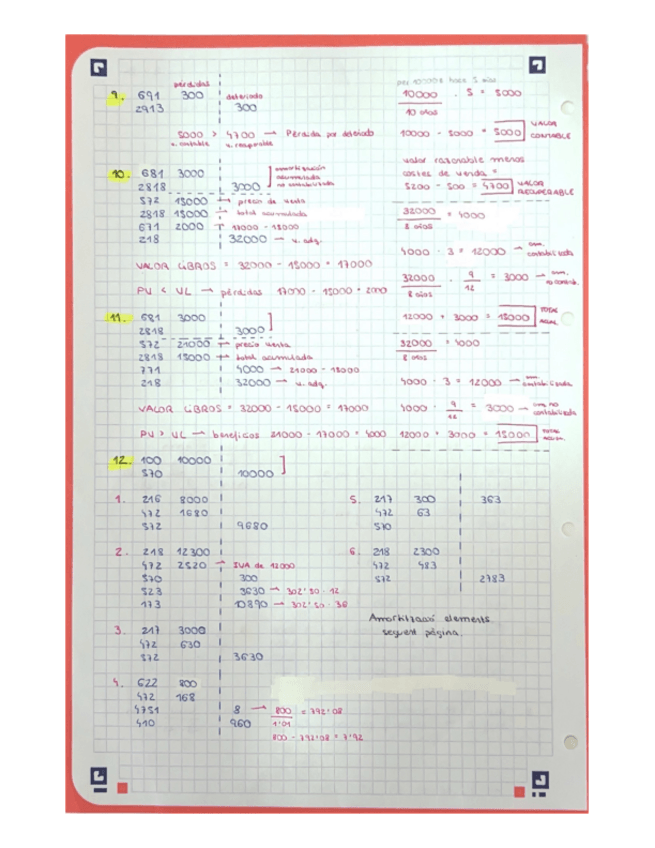 pérdidas
9. 691 300 deteriodo
2913 300
5000 > 4700 → Pérdida por deteriodo
v. contable v. recuperable
hace 5 años
10000 . 5 = 5000
10 años
10000 - 5000 = 5000 VALOR CONTABLE
valor razonable menos
costes de venta =
5200 - 500 = 4700 VALOR RECUPERABLE
10. 681 3000 amortización acumulada no contabilizada
2818 3000
572 15000 → precio de venta
2818 15000 → total acumulada
671 2000 → 17000 - 15000
218 32000 → v. adq.
VALOR LIBROS = 32000 - 15000 = 17000
PV < VL → pérdidas 17000 - 15000 = 2000
32000 = 4000
8 años
4000 . 3 = 12000 → am. contabilizada
32000 . 9 = 3000 → am. no contab.
8 años 12
12000 + 3000 = 15000 TOTAL
11. 681 3000
2818 3000
572 21000 → precio venta
2818 15000 → total acumulada
771 4000 → 21000 - 18000
218 32000 → v. adq.
VALOR LIBROS = 32000 - 15000 = 17000
PV > VL → beneficios 21000 - 17000 = 4000
32000 = 4000
8 años
4000 . 3 = 12000 → am. contabilizada
4000 . 9 = 3000 → am. no contabilizada
12
12000 + 3000 = 15000 TOTAL
12. 100 10000
570 10000
1. 216 8000
472 1680
572 9680
2. 218 12300
472 2520 → IVA de 12000
570 300
523 3630 → 302'50 · 12
173 10890 → 302'50 · 36
3. 217 3000
472 630
572 3630
4. 622 800
472 168
4751 8 → 800 = 792'08
1'01
410 960
800 - 792'08 = 7'92
5. 217 300 363
472 63
570
6. 218 2300
472 483
572 2783
Amortització elements
següent pàgina.